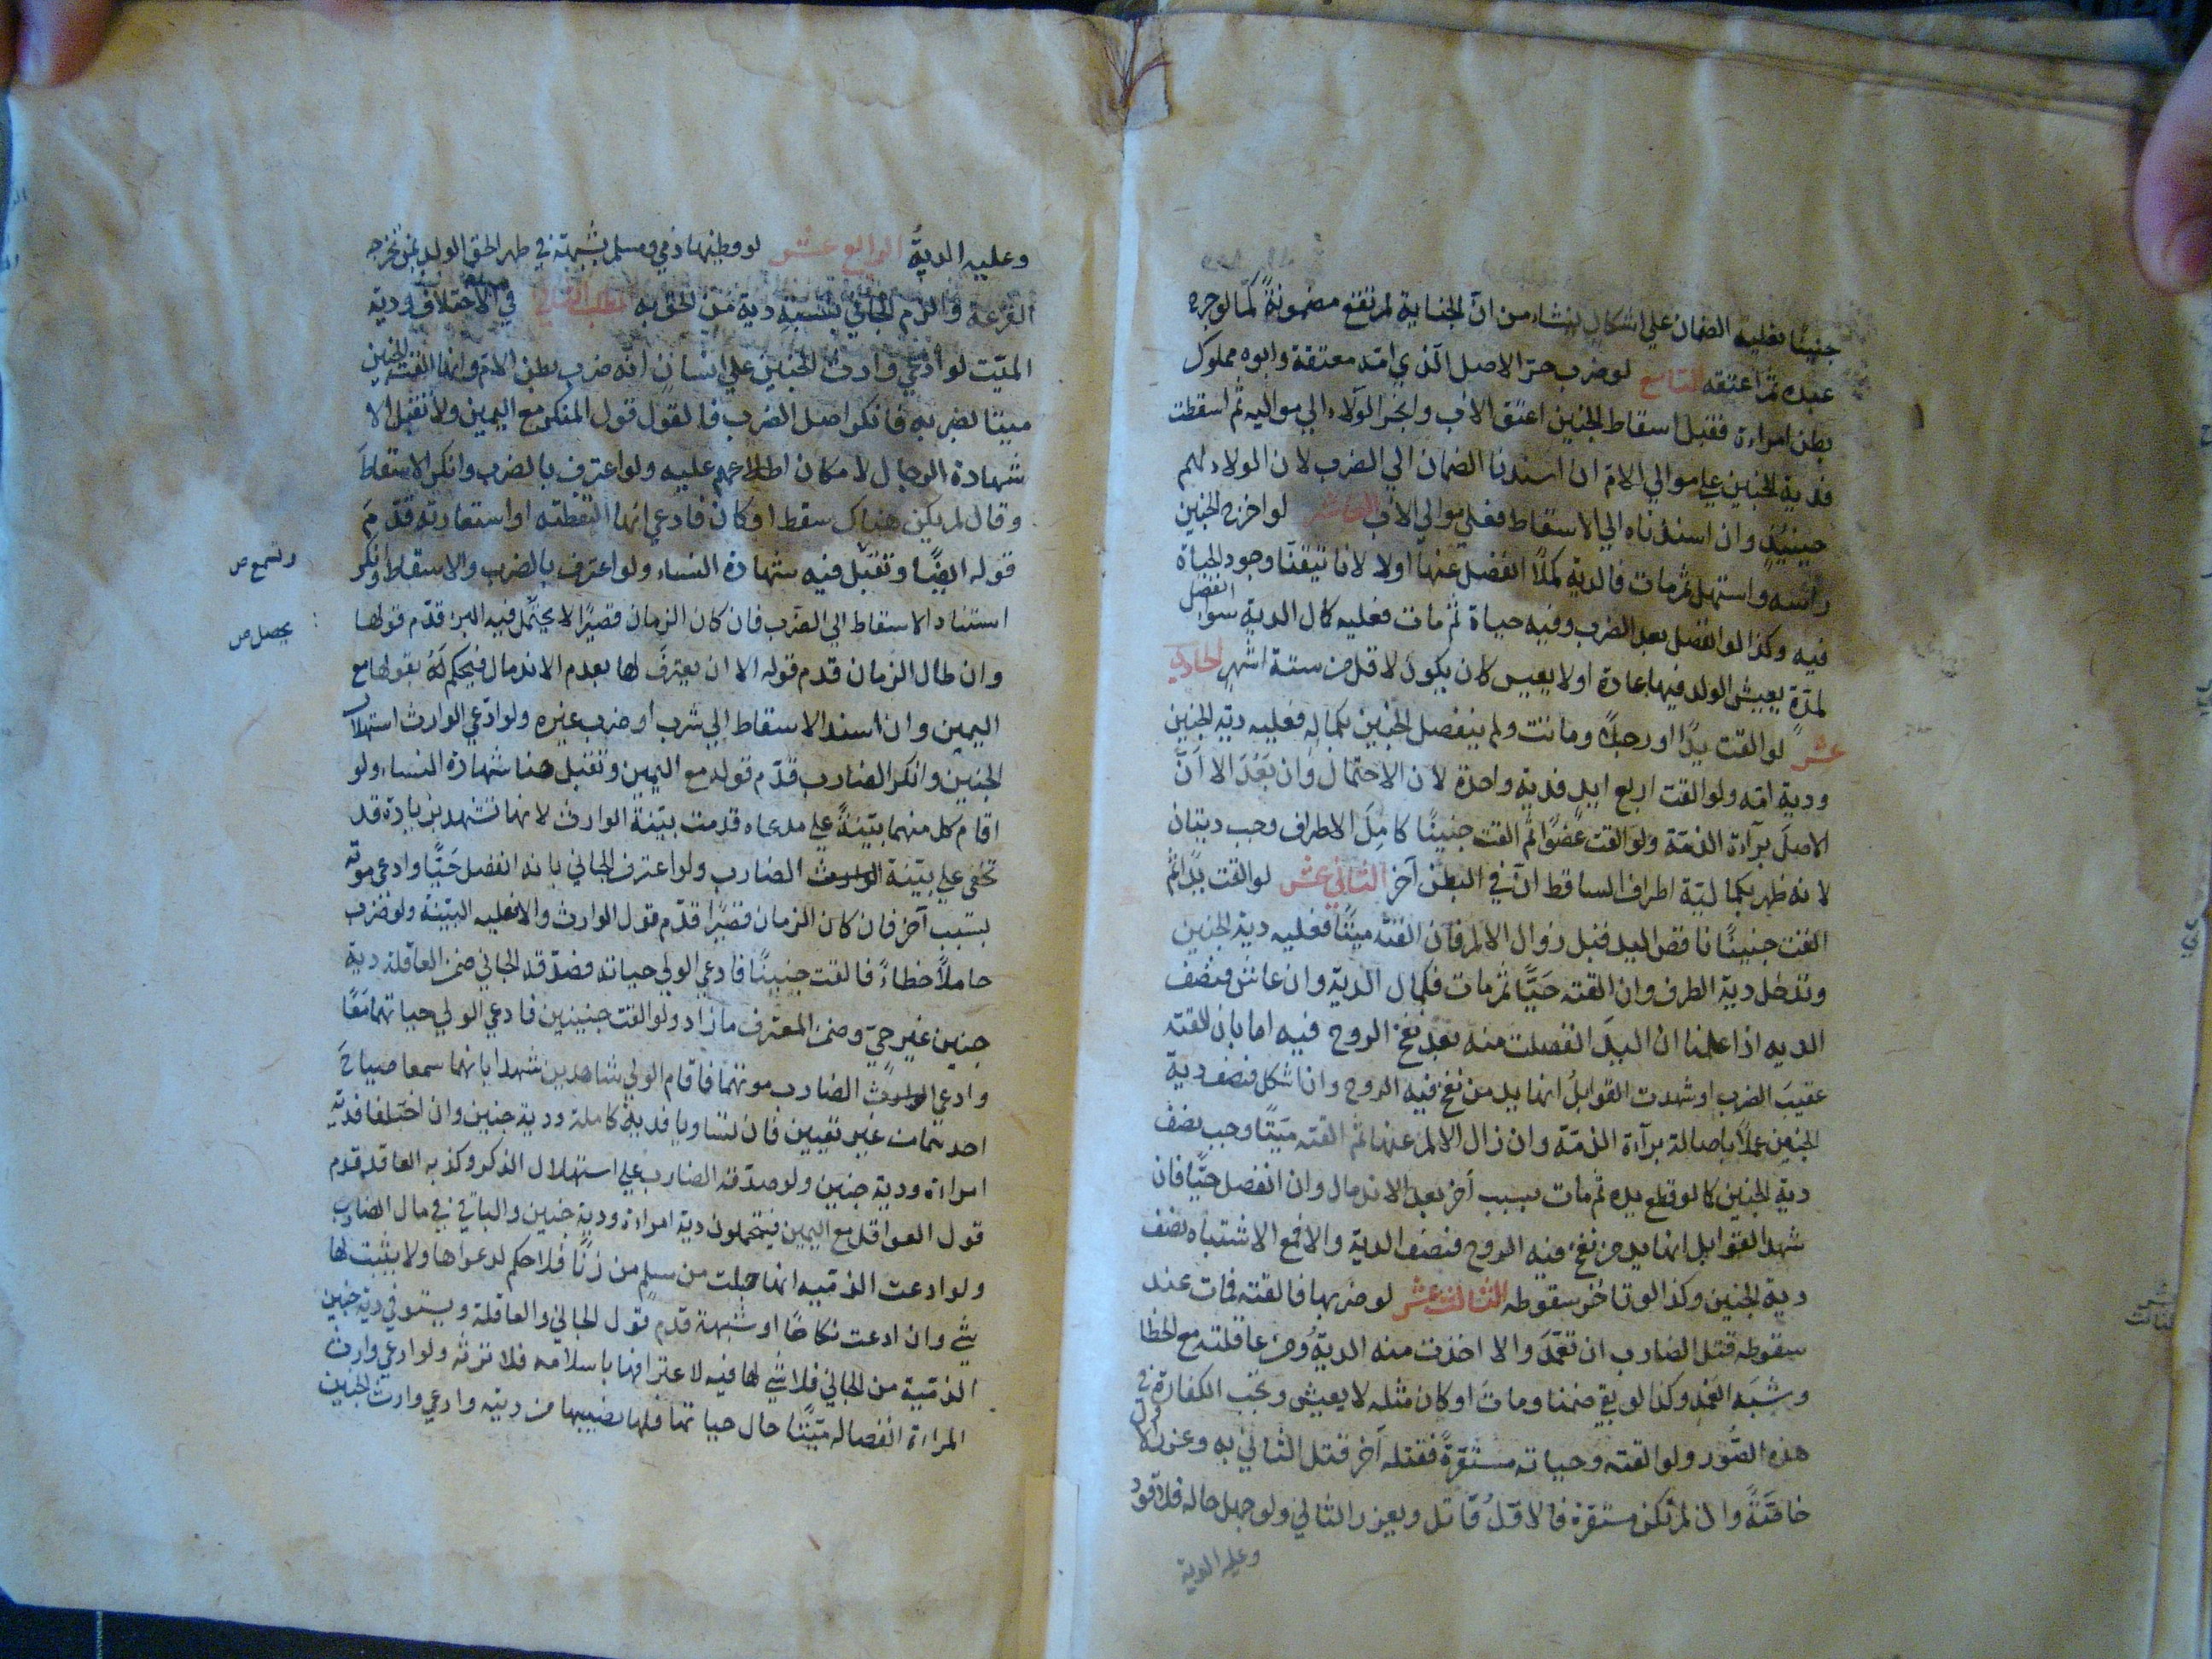 جنينًا فعليه الضمان علي اشكال ينشاء من انّ الجناية لم تقع مضمونةً كما لو جرح
عبده ثم اعتقه التاسع لو ضرب حرّ الاصل الذي امّه معتقة وابوه مملوك
بطن امراءة فقبل اسقاط الجنين اعتق الاب وانجرّ الولاء الي مواليه ثم اسقطت
فدية الجنين علي موالي الامّ ان اسندنا الضمان الي الضرب لان الولاء لهم
حينئذٍ وان اسندناه الي الاسقاط فعلي موالي الاب العاشر لو اخرج الجنين
راسه واستهل ثم مات فالدية كملاً انفصل عنها اولا لانا تيقنّا وجود الحياة
فيه وكذا لو انفصل بعد الضرب وفيه حياة ثم مات فعليه كال الدية سواء انفصل
لمدّة يعيش الولد فيها عادة اولا يعيس كان يكون لاقل من ستة اشهر الحادي
عشر لو القت يدًا او رجلاً وماتت ولم ينفصل الجنين بكماله فعليه دية الجنين
ودية امّه ولو القت اربع ايدٍ فدية واحدة لان الاحتمال وان بَعُدَ الا انّ
الاصلَ برآءة الذمّة ولو القت عُضوًا ثم القت جنينًا كامِلَ الاطراف وجب ديتان
لانه ظهر بكماليّة اطراف الساقط انّ في البطن آخر الثاني عشر لو القت يدًا ثمّ
القت جنينًا ناقص اليد قبل زوال الالم فان القته ميّتًا فعليه دية الجنين
وتدخل دية الطرف وان القته حَيًّا ثم مات فكمال الديّة وان عاش فنصف
الديه اذا علمنا انّ اليدَ انفصلت منه بعد نفخ الروح فيه اما بان القته
عقيبَ الضرب او شهدت القوابلُ انها يد من نفخ فيه الروح وان اشكل فنصف دية
الجنين عملاً باصالة برآءة الذمّة وان زال الالم عنها ثمّ القته ميّتًا وجب نصف
دية الجنين كما لو قطع يده ثم مات بسبب آخر بعد الاندمال وان انفصل حيًّا فان
شهد القوابل انها يد من نفخ فيه الروح فنصف الديّة والا فمع الاشتباه نصف
دية الجنين وكذا لو تاخر سقوطه الثالث عشر لو ضربها فالقته فمات عند
سقوطه قتل الضارب ان تعمّدَ والا اخذت منه الديّةُ ومن عاقلته مع الخطا
وشبَه العَمْد وكذا لو بقي ضمنا وماتَ او كان مثله لا يعيش وتجب الكفارة في
هذه الصُّور ولو القته وحياته مستقرةً فقتله آخر قتل الثاني به وعزر الاول
خاصَّةً وان لم تكن مستقرة فالاوّلُ قاتل ويعزر الثاني ولو جهل حاله فلا قود
وعليه الدية
وعليه الديةُ الرابع عشر لو وطيها ذمي ومسلم بشبهة في طهر الحق الولد بمن تخرجه
القرعة والزم الجاني بنسبة دية من لحق به المطلب الثاني في الاختلاف ودية
الميّت لو ادّعي وارث الجنين علي انسان انه ضرب بطن الامّ وانها القت الجنين
ميتا بضربه فانكر اصل الضرب فالقول قول المنكر مع اليمين ولا تقبل الا
شهادة الرجال لامكان اطلاعهم عليه ولو اعترف بالضرب وانكر الاسقاطَ
وقال لم يكن هناك سقط او كان فادعي انها التقطته او استعارته قدّمَ
قوله ايضًا وتقبل فيه شهادة النساء ولو اعترف بالضرب والاسقاط وانكر
استناد الاسقاط الي الضرب فان كان الزمان قصيرًا لا يحتمل فيه البرء قدّم قولها
وان طال الزمان قدم قوله الا ان يعترفَ لها بعدم الاندمال فيحكم لَهُ بقولها مع
اليمين وان اسند الاسقاط الي شرب او ضرب غيره ولو ادّعي الوارث استهلال
الجنين وانكر الضارب قدّم قوله مع اليمين وتقبل هنا شهادة النساء ولو
اقام كل منهما بيّنةً علي مدعاه قدمت بيّنة الوارث لانها تشهد بزيادة قد
تخفي علي بيّنة الوارث الضارب ولو اعترف الجاني بانه انفصل حَيًّا وادعي موته
بسبب آخر فان كان الزمان قصيرًا قدّم قول الوارث والا فعليه البيّنة ولو ضرب
حاملاً خطاءً فالقت جنينًا فادعي الولي حياته فصدّقه الجاني ضمن العاقلة دية
جنين غير حيّ وضمن المعترف ما زاد ولو القت جنينين فادعي الولي حياتهما مَعًا
وادعي الوارث الضارب موتهما فاقام الولي شاهدين شهدا بانهما سمعا صياحَ
احدهما من غير تعيين فان تساويا فديةٌ كاملة ودية جنين وان اختلفا فدية
امراءة ودية جنين ولو صدّقه الضارب علي استهلال الذكر وكذبه العاقلة قدم
قول العواقل مع اليمين فيتحملون دية امراءة ودية جنين والباقي في مال الضارب
ولو ادعت الذمّيه انها حبلت من مسلم من زنًا فلا حكم لدعواها ولا يثبت لها
شئ وان ادعت نكاحًا او شبهة قدم قول الجاني والعاقلة ويستوفي دية جنين
الذمّية من الجاني فلا شئ لها فيه لاعترافها باسلامه فلا ترثه ولو ادعي وارث
المراءة انفصاله ميّتًا حال حياتها فلها نصيبها من ديته وادعي وارث الجنين
وتسمع ص
يحصل ص